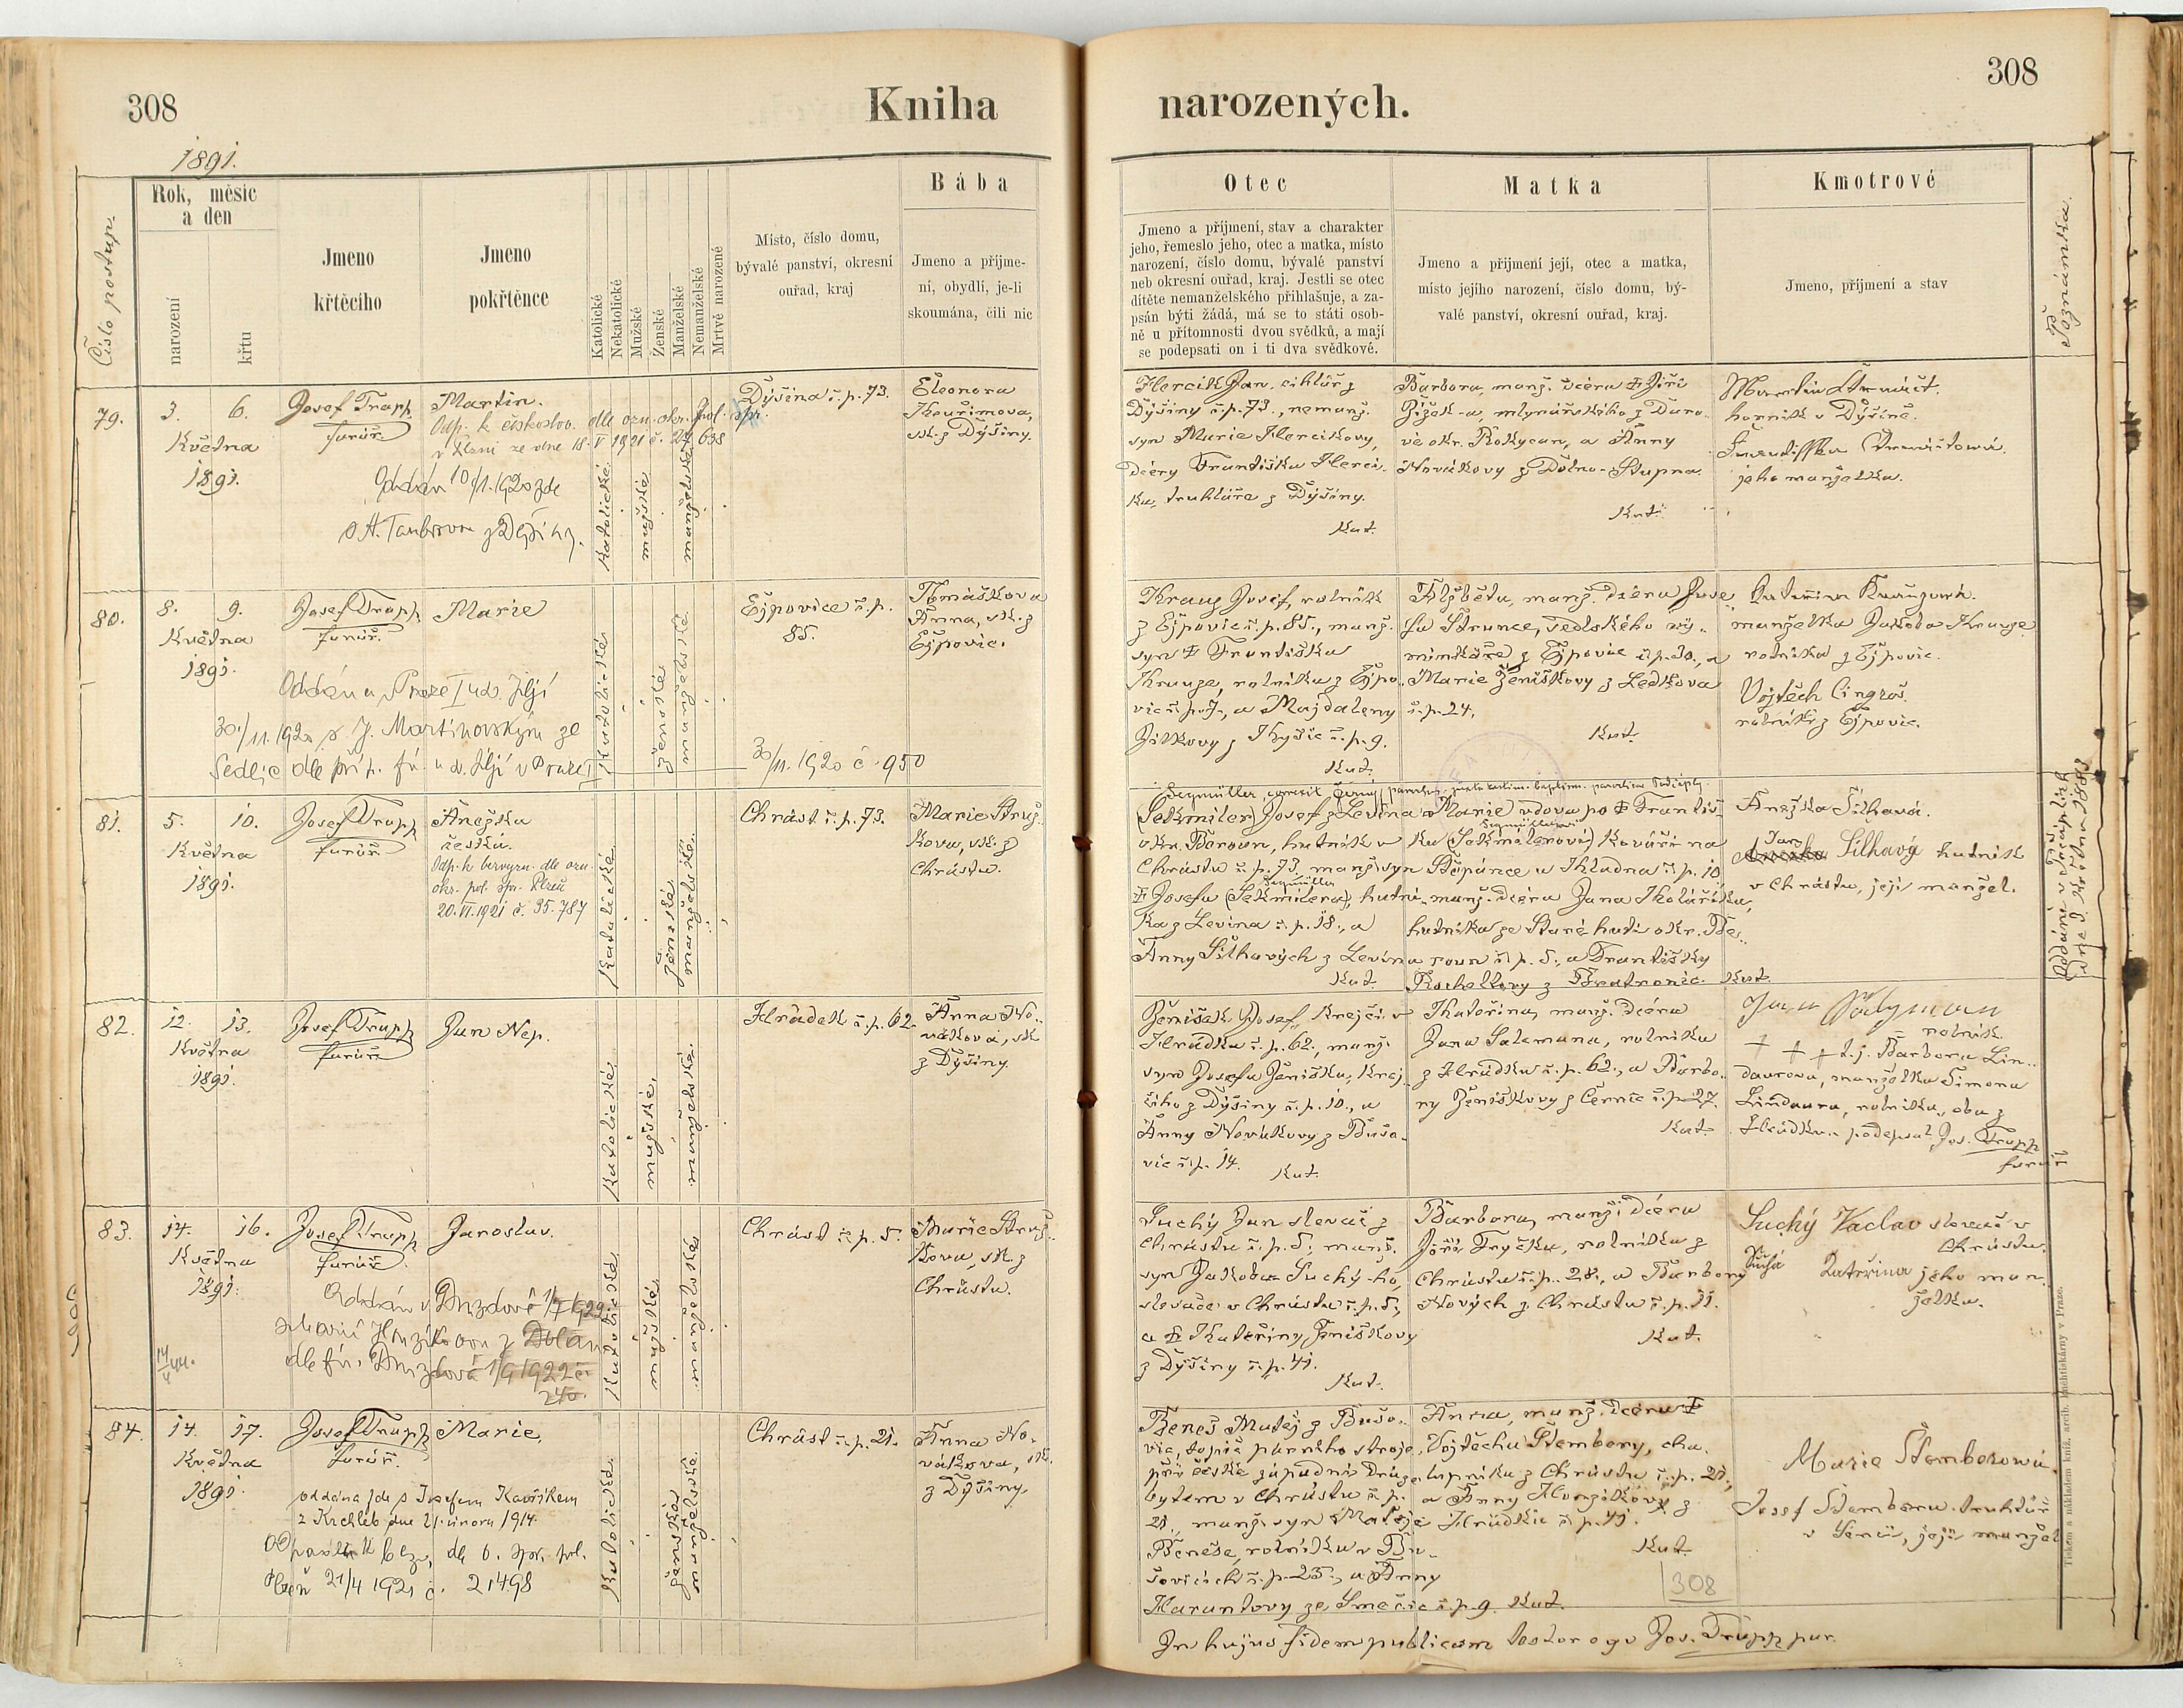 308
Kniha
narozených.
308
1891.
Číslo postup.
Rok, měsíc
a den
narození
křtu
Jmeno
křtěcího
Jmeno
pokřtěnce
Katolické
Nekatolické
Mužské
Ženské
Manželské
Nemanželské
Mrtvě narozené
Místo, číslo domu,
bývalé panství, okresní
ouřad, kraj
Bába
Jmeno a příjme-
ní, obydlí, je-li
skoumána, čili nic
Otec
Jmeno a příjmení, stav a charakter
jeho, řemeslo jeho, otec a matka, místo
narození, číslo domu, bývalé panství
neb okresní ouřad, kraj. Jestli se otec
dítěte nemanželského přihlašuje, a za-
psán býti žádá, má se to státi osob-
ně u přítomnosti dvou svědků, a mají
se podepsati on i ti dva svědkové.
Matka
Jmeno a příjmení její, otec a matka,
místo jejího narození, číslo domu, bý-
valé panství, okresní ouřad, kraj.
Kmotrové
Jmeno, příjmení a stav
Poznámka.
79.
3. 6.
Května
1891.
Josef Trapp
farář.
Martin.
Odp. k českoslov. dle ozn. okr. pol. spr.
v Plzni ze dne 18. V 1921 č. 24 638
Oddán 10/1. 1920 zde
s A. Taubrovou z Dýšiny.
katolické
mužské
manželské
Dýšina č. p. 73.
Eleonora
Kouřimova,
sk. z Dýšiny.
Hercik Jan, cihlář z
Dýšiny č. p. 73., nemanž.
syn Marie Hercikovy,
dcery Františka Herci-
ka, truhláře z Dýšiny.
Kat.
Barbora, manž. dcera † Jiří
Žížek-a, mlynářského z Daro-
vé okr. Rokycan, a Anny
Novákovy z Dolno-Stupna.
Kat.
Martin
horník v Dýšině.
jeho manželka.
80.
8. 9.
Května
1891.
Josef Trapp
farář.
Marie
Oddána v Praze I u sv. Jiljí
30./11. 1920 s J. Martínovským ze
Sedlic dle příp. fú. u sv. Jiljí v Praze I
30/11. 1920 č. 950
katolické
ženské
manželské
Ejpovice č. p.
85.
Tomáškova
Anna, sk. z
Ejpovic.
Krauz Josef, rolník
z Ejpovic č. p. 85., manž.
syn † Františka
Krauze, rolníka z Ejpo-
vic č. p. 7., a Majdaleny
Jílkovy z Kyšic č. p. 9.
Kat.
Alžběta, manž. dcera Jose-
fa Strunce, sedlského vý-
minkáře z Ejpovic č. p. 30., a
Marie Ženíškovy z Ledkova
č. p. 24.
Kat.
Kateřina Krauzová.
manželka Jakoba Krauze
rolníka z Ejpovic.
Vojtěch Cingroš.
rolník z Ejpovic.
81.
5. 10.
Května
1891.
Josef Trapp
farář.
Anežka
česká.
Odp. k bezvyzn. dle ozn.
okr. pol. spr. Plzeň
20. VI. 1921 č. 35.787
katolické
ženské
manželské
Chrást č. p. 73.
Marie Struž-
kova, sk. z
Chrástu.
(Sekmiler) Josef z Levína
okr. Beroun, hutník v
Chrástu č. p. 73, manž. syn
Segmüller
† Josefa (Sekmilera), hutní-
ka z Levína č. p. 18., a
Anny Šilhavých z Levína
Kat.
Marie vdova po † Františ-
Segmüllerová
ku (Sekmilerovi) kováři na
Štěpánce u Kladna č. p. 10
manž. dcera Jana Kolaříka,
hutníka ze Staré huti okr. Be-
roun č. p. 5., a Františky
Rocheltovy z Bratronic. Kat.
Anežka Šilhavá.
Jan Šilhavý hutník
v Chrástu, její manžel.
82.
12. 13.
Května
1891.
Josef Trapp
farář.
Jan Nep.
katolické
mužské
manželské
Hrádek č. p. 62.
Anna No-
vákova, sk.
z Dýšiny.
Ženíšek Josef, krejčí v
Hrádku č. p. 62., manž.
syn Josefa Ženíška, krej-
čího z Dýšiny č. p. 10., a
Anny Novákovy z Bušo-
vic č. p. 14. Kat.
Kateřina, manž. dcera
Jana Salcmana, rolníka
z Hrádku č. p. 62., a Barbo-
ry Ženíškovy z Černic č. p. 27.
Kat.
rolník.
† † † t. j. Barbora Lin-
daurova, manželka Šimona
Lindaura, rolníka, oba z
Hrádku. podepsal Jos. Trapp
farář
83.
14. 16.
Května
1891.
Josef Trapp
farář.
Jaroslav.
katolické
mužské
manželské
Chrást č. p. 5.
Marie Struž-
kova, sk. z
Chrástu.
Suchý Jan slevač z
Chrástu č. p. 5., manž.
syn Jakoba Suchý-ho,
slevače v Chrástu č. p. 5.,
a † Kateřiny Ženíškovy
z Dýšiny č. p. 41.
Kat.
Barbora, manž. dcera
Jiří Fryčka, rolníka z
Chrástu č. p. 28., a Barbory
Nových z Chrástu č. p. 11.
Kat.
Suchý Václav slevač v
Chrástu.
Suchá Kateřina jeho man-
želka.
84.
14. 17.
Května
1891.
Josef Trapp
farář.
Marie.
oddána zde s Josefem Kavříkem
z Krchleb dne 21. února 1914.
Plzeň 21/4 1921 č. 21498
katolické
ženské
manželské
Chrást č. p. 21.
Anna No-
vákova, sk.
z Dýšiny.
Beneš Matěj z Bušo-
vic, topič parního stroje
při české západní dráze
bytem v Chrástu č. p.
21., manž. syn Matěje
Beneše, rolníka v Bu-
šovicích č. p. 25., a Anny
Harantovy ze Smečic č. p. 9. Kat.
Anna, manž. dcera †
Vojtěcha Štembery, cha-
lupníka z Chrástu č. p. 21.,
a Anny Honzíkovy z
Hrádku č. p. 41.
Kat.
308
Marie Štemberowá.
Josef Štembera truhlář
její manžel
In hujus fidem publicam testor ego Jos. Trapp par.
Tiskem a nákladem kníž. arcib. knihtiskárny v Praze.